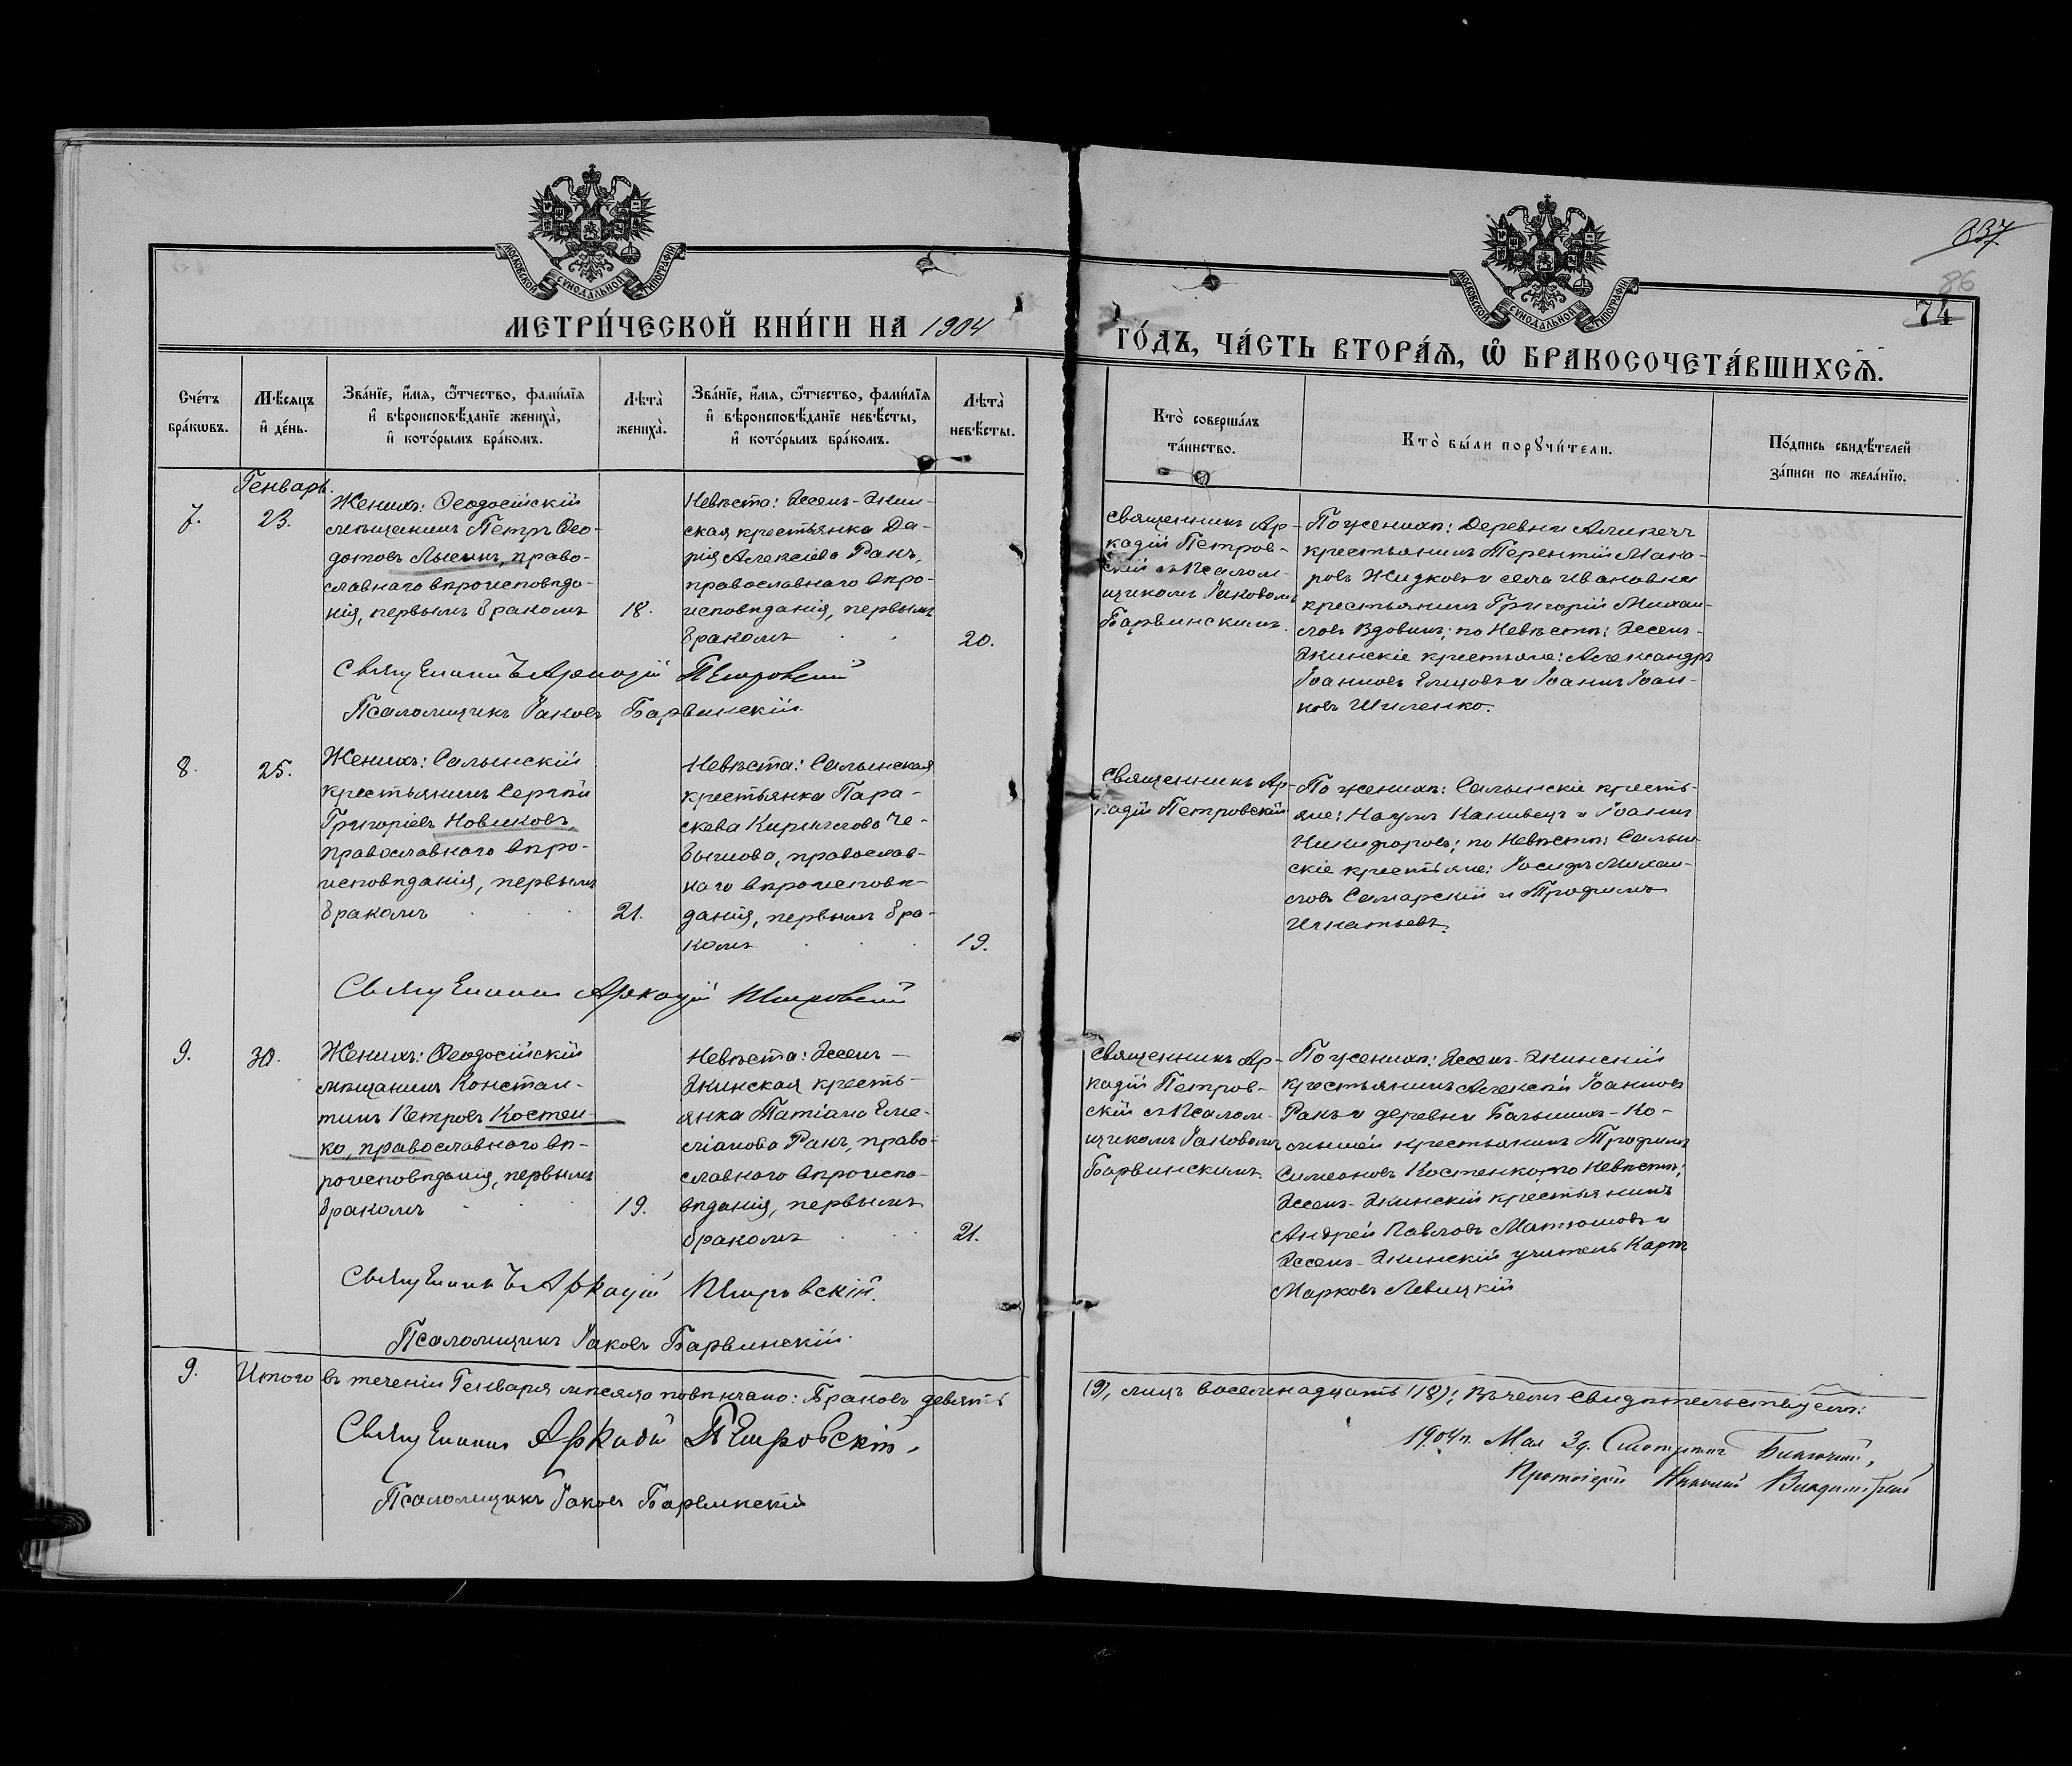 337
86
74
МОСКОВСКОЙ СѴНОДАЛЬНОЙ ТИПОГРАФІИ
МОСКОВСКОЙ СѴНОДАЛЬНОЙ ТИПОГРАФІИ
МЕТРИ́ЧЕСКОЙ КНИ́ГИ НА 1904
ГО́ДЪ, ЧА́СТЬ ВТОРА́Ѧ, Ѽ БРАКОСОЧЕТА́ВШИХСѦ.
Сче́тъ
бра́кѡвъ.
Мѣ́сѧцъ
и҆ де́нь.
Зва́нїе, и҆́мѧ, ѻ҆́тчество, фами́лїѧ
и҆ вѣроисповѣ́данїе жениха̀,
и҆ кото́рымъ бра́комъ.
Лѣта̀
жениха̀.
Зва́нїе, и҆́мѧ, ѻ҆́тчество, фами́лїѧ
и҆ вѣроисповѣ́данїе невѣ́сты,
и҆ кото́рымъ бра́комъ.
Лѣта̀
невѣ́сты.
Кто̀ соверша́лъ
та́инство.
Кто̀ бы́ли порꙋчи́тели.
По́дпись свидѣ́телей
за́писи по жела́нїю.
7.
Генварь.
23.
Женихъ: Ѳеодосійскій
мѣщанинъ Петръ Ѳео-
дотовъ Лысинъ, право-
славнаго вѣроисповѣда-
нія, первымъ бракомъ
18.
Невѣста: Эссенъ-Экин-
ская крестьянка Да-
рія Алексіева Ракъ,
православнаго вѣро-
исповѣданія, первымъ
бракомъ
20.
Священникъ Ар-
кадій Петров-
скій съ Псалом-
щикомъ Іаковомъ
Барвинскимъ.
По женихѣ: Деревни Аликечъ
крестьянинъ Терентій Мака-
ровъ Жидковъ и села Ивановки
крестьянинъ Григорій Михаи-
ловъ Вдовинъ; по Невѣстѣ: Эссенъ-
Экинскіе крестьяне: Александръ
Іоанновъ Емцовъ и Іоаннъ Іоан-
новъ Шиленко.
Священникъ Аркадій Петровскій
Псаломщикъ Іаковъ Барвинскій.
8.
25.
Женихъ: Салынскій
крестьянинъ Сергѣй
Григоріевъ Новиковъ,
православнаго вѣро-
исповѣданія, первымъ
бракомъ
21.
Невѣста: Салынская
крестьянка Пара-
скева Кириллова Че-
православ-
наго вѣроисповѣ-
данія, первымъ бра-
комъ
19.
Священникъ Ар-
кадій Петровскій
По женихѣ: Салынскіе кресть-
яне: Наумъ Канивецъ и Іоаннъ
Никифоровъ; по Невѣстѣ: Салын-
скіе крестьяне: Іосифъ Михаи-
ловъ Самарскій и Трофимъ
Игнатьевъ.
Священникъ Аркадій Петровскій
9.
30.
Женихъ: Ѳеодосійскій
мѣщанинъ Констан-
тинъ Петровъ Костен-
ко, православнаго вѣ-
роисповѣданія, первымъ
бракомъ
19.
Невѣста: Эссенъ-
Экинская кресть-
янка Татіана Еме-
ліанова Ракъ, право-
славнаго вѣроиспо-
вѣданія, первымъ
бракомъ
21.
Священникъ Ар-
кадій Петров-
скій съ Псалом-
щикомъ Іаковомъ
Барвинскимъ.
По женихѣ: Эссенъ-Экинскій
крестьянинъ Алексѣй Іоанновъ
Ракъ и деревни
крестьянинъ Трофимъ
Симеоновъ Костенко, по Невѣстѣ:
Эссенъ-Экинскій крестьянинъ
Андрей Павловъ Матюшовъ и
Эссенъ-Экинскій учитель Карпъ
Марковъ Левицкій
Священникъ Аркадій Петровскій.
Псаломщикъ Іаковъ Барвинскій.
9. Итого въ теченіи Генваря мѣсяца повѣнчано: Браковъ девять
(9), лицъ восемнадцать (18); Въ чемъ свидѣтельствуемъ:
Священникъ Аркадій Петровскій.
Псаломщикъ Іаковъ Барвинскій
1904 г. Мая 3 д. Смотрѣлъ Благочин.,
Протоіерей